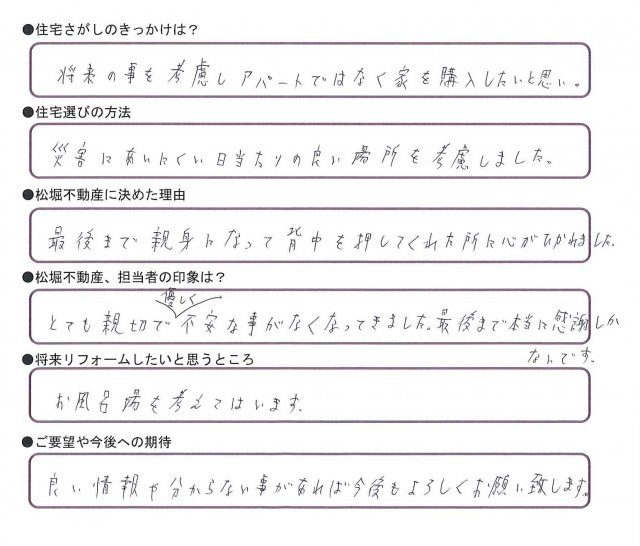 ●住宅さがしのきっかけは？
将来の事を考慮しアパートではなく家を購入したいと思い。
●住宅選びの方法
災害にあいにくい日当たりの良い場所を考慮しました。
●松堀不動産に決めた理由
最後まで親身になって背中を押してくれた所に心がひかれました。
●松堀不動産、担当者の印象は？
優しく
とても親切で不安な事がなくなってきました。最後まで本当に感謝しか
ないです。
●将来リフォームしたいと思うところ
お風呂場を考えてはいます。
●ご要望や今後への期待
良い情報や分からない事があれば今後もよろしくお願い致します。